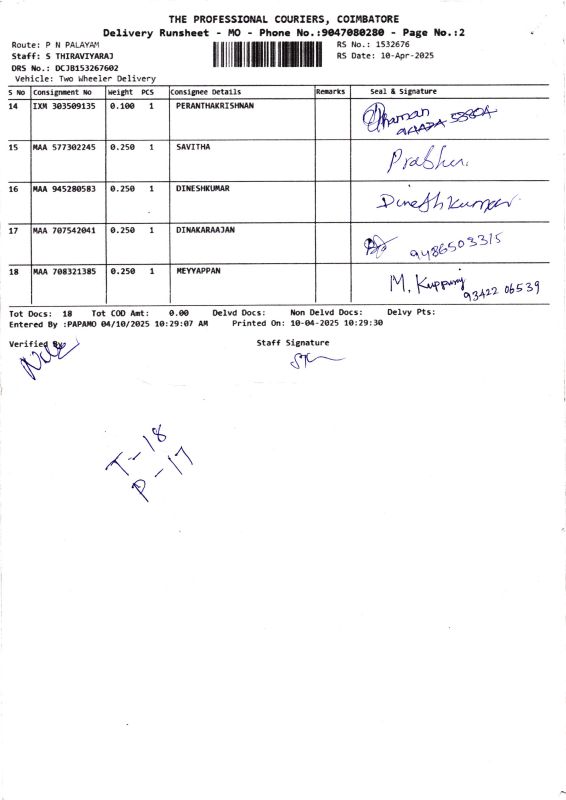 THE PROFESSIONAL COURIERS, COIMBATORE
Delivery Runsheet - MO - Phone No.:9047080280 - Page No.:2
Route: P N PALAYAM RS No.: 1532676
Staff: S THIRAVIYARAJ RS Date: 10-Apr-2025
DRS No.: DCJB153267602
Vehicle: Two Wheeler Delivery
S No Consignment No Weight PCS Consignee Details Remarks Seal & Signature
14 IXM 303509135 0.100 1 PERANTHAKRISHNAN
15 MAA 577302245 0.250 1 SAVITHA Prabhu.
16 MAA 945280583 0.250 1 DINESHKUMAR Dineshkumar
17 MAA 707542041 0.250 1 DINAKARAAJAN 9486503315
18 MAA 708321385 0.250 1 MEYYAPPAN M. Kuppuraj
93422 06539
Tot Docs: 18 Tot COD Amt: 0.00 Delvd Docs: Non Delvd Docs: Delvy Pts:
Entered By :PAPAMO 04/10/2025 10:29:07 AM Printed On: 10-04-2025 10:29:30
Verified By Staff Signature
T-18
P-17